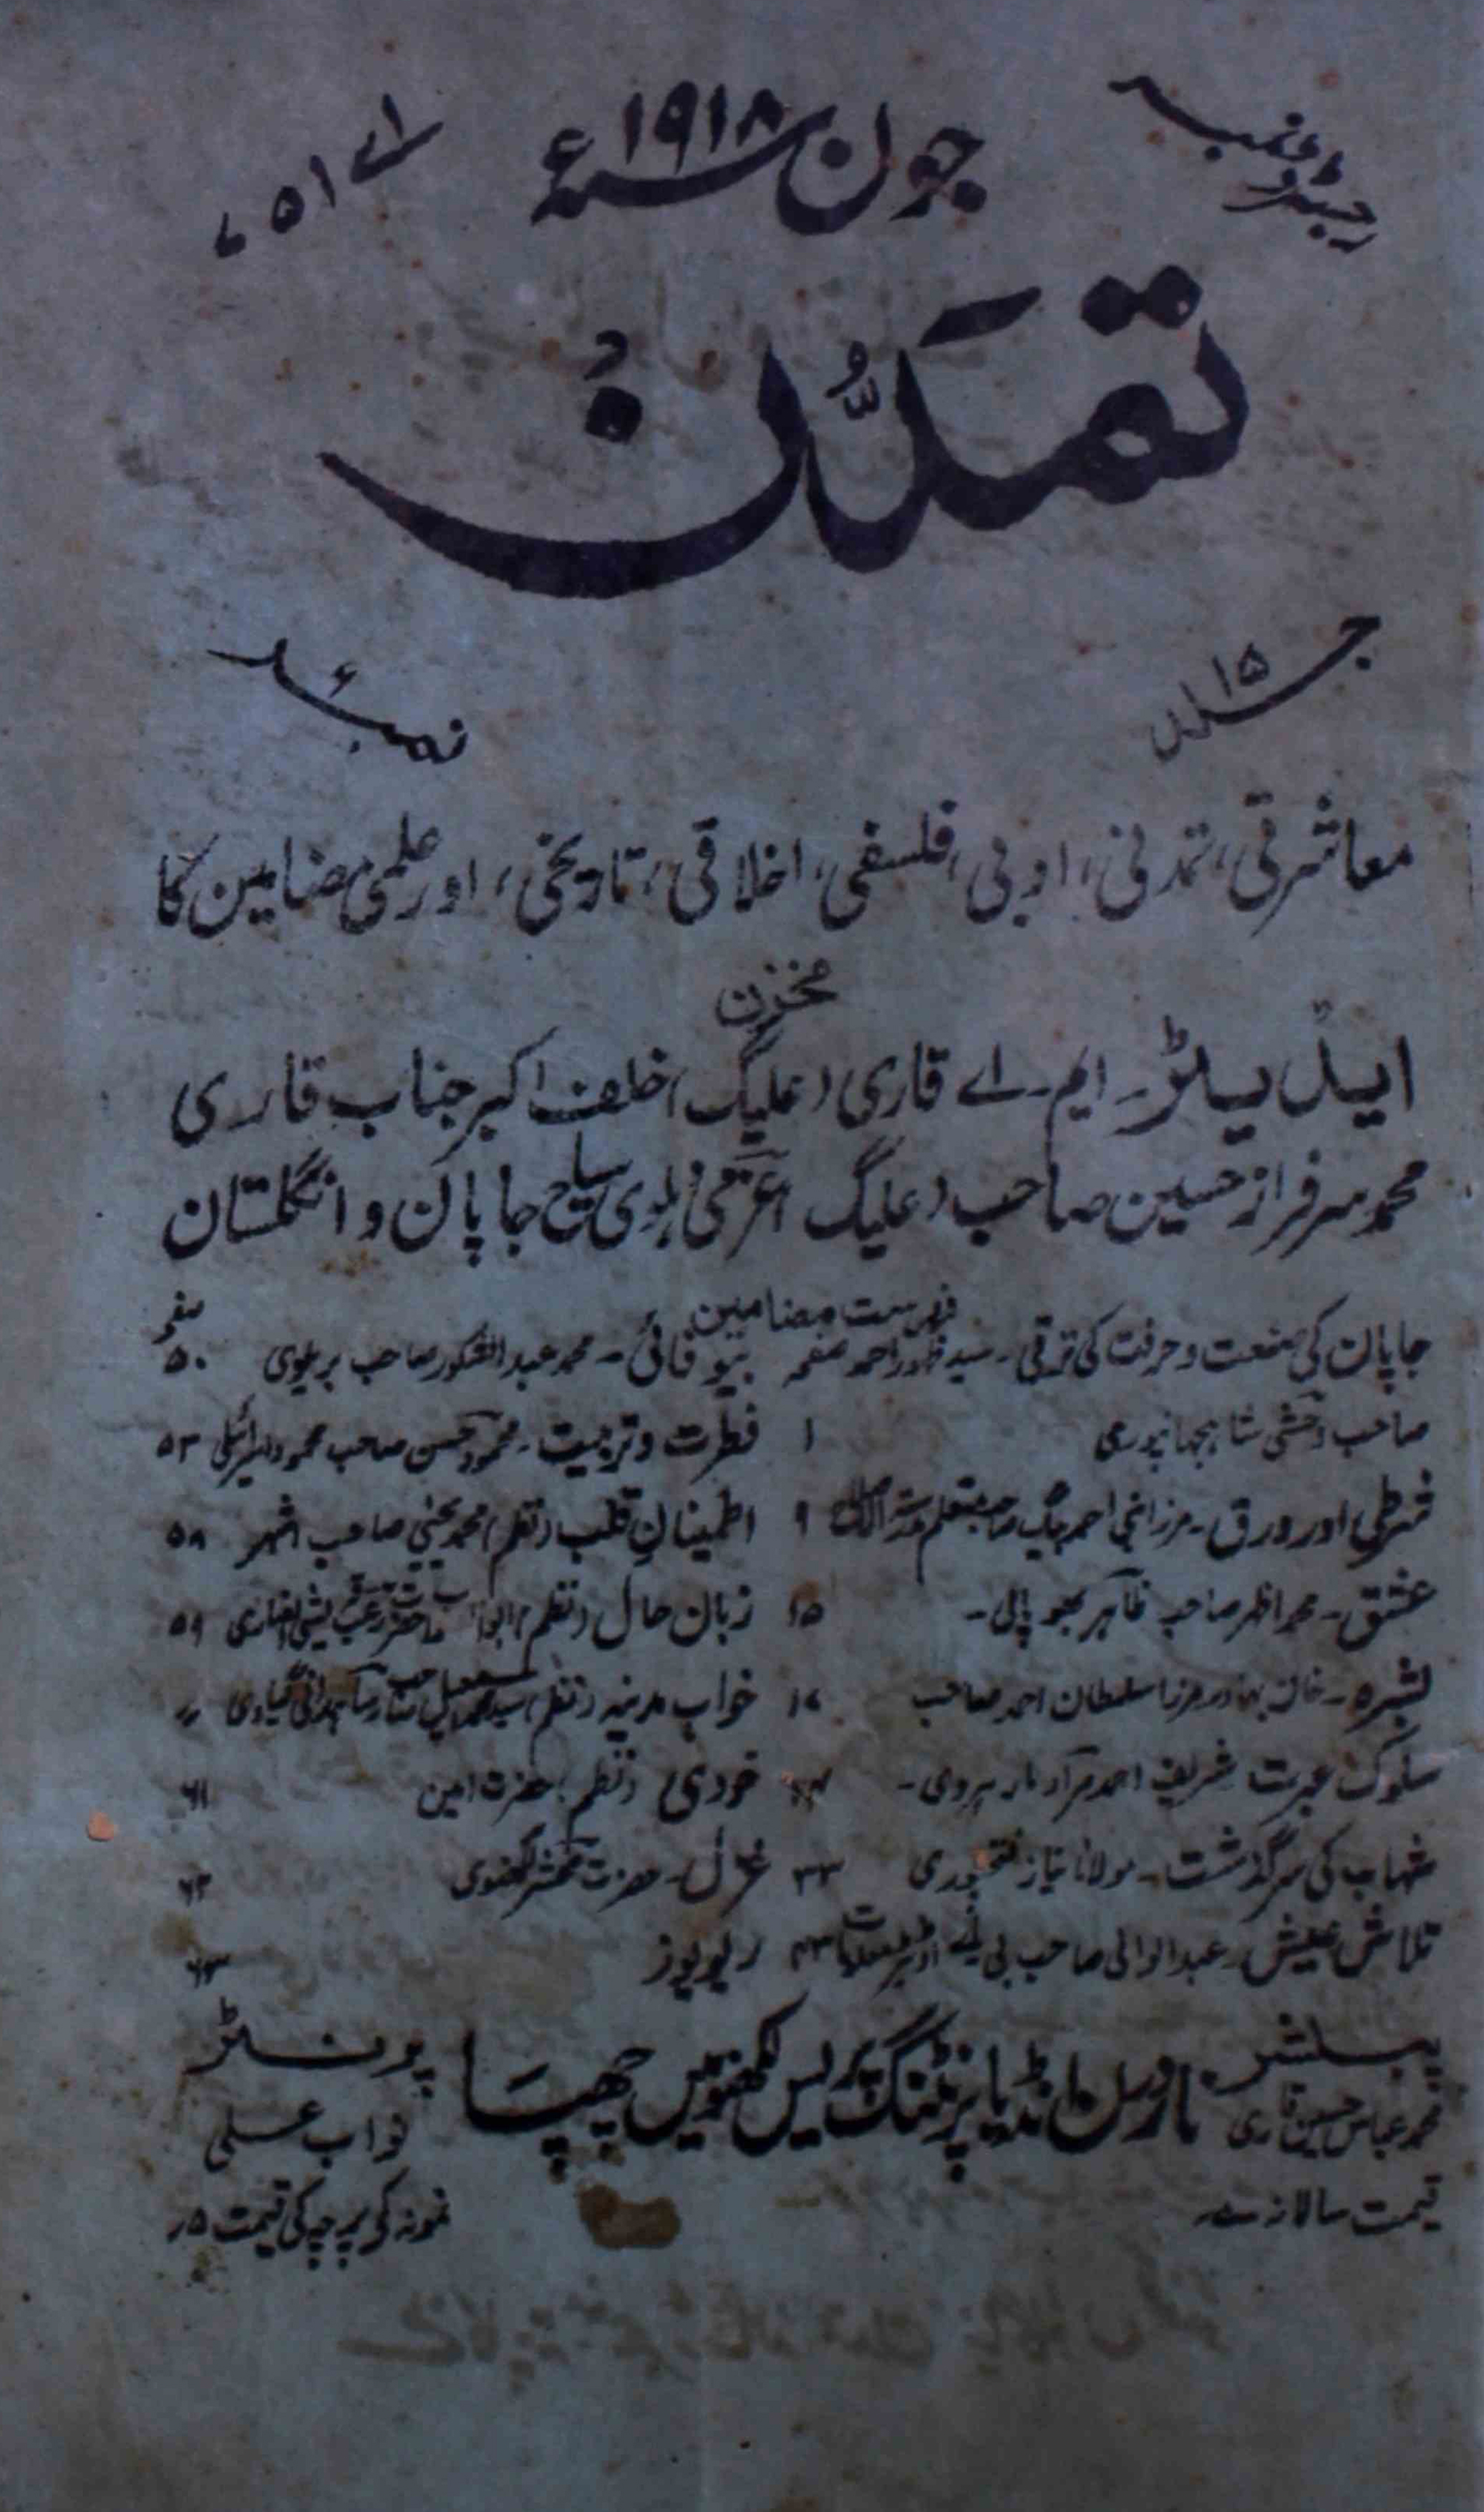 رجسٹرڈ نمبر
جون سنہ ۱۹۱۸ء
اے ۵۱۷
تمدُّن
جلد ۱۵
نمبر ۶
معاشرتی، تمدنی، ادبی، فلسفی، اخلاقی، تاریخی، اور علمی مضامین کا
مخزن
ایڈیٹر۔ ایم۔ اے قاری (علیگ) خلف اکبر جناب قاری
محمد سرفراز حسین صاحب (علیگ) عزمی دہلوی سیاح جاپان و انگلستان
فہرست مضامین
صفحہ
جاپان کی صنعت و حرفت کی ترقی۔ سید ظہور احمد
صاحب وحشی شاہجہانپوری ۱
قرطی اور ورق۔ مرزا فہیم احمد بیگ صاحب متعلم ۹
عشق۔ محمد اظہر صاحب ظاہر بھوپالی۔ ۱۵
بشرہ۔ خان بہادر مرزا سلطان احمد صاحب ۱۷
سلوک عبرت شریف احمد مراد مارہروی۔
شہاب کی سرگذشت۔ مولانا نیاز فتحپوری ۳۳
تلاش عیش۔ عبدالوالی صاحب بی اے ایڈیٹر معلومات ۴۳
صفحہ
بیوفائی۔ محمد عبدالشکور صاحب بریلوی ۵۰
فطرت و تربیت۔ محمود حسن صاحب محمود اسرائیلی ۵۳
اطمینان قلب (نظم) محمد یحییٰ صاحب اشہر ۵۸
زبان حال (نظم) ۵۹
خواب مدینہ (نظم) سید محمد اسمعیل صاحب رسا ہمدانی گیاوی //
خودی (نظم) حضرت امین ۶۱
غزل۔ حضرت محشر لکھنوی ۶۲
ریویوز ۶۳
پبلشر
محمد عباس حسین قاری
ناردرن انڈیا پرنٹنگ پریس لکھنؤ میں چھپا
پرنٹر
نواب علی
قیمت سالانہ
نمونہ کے پرچہ کی قیمت ۵؍